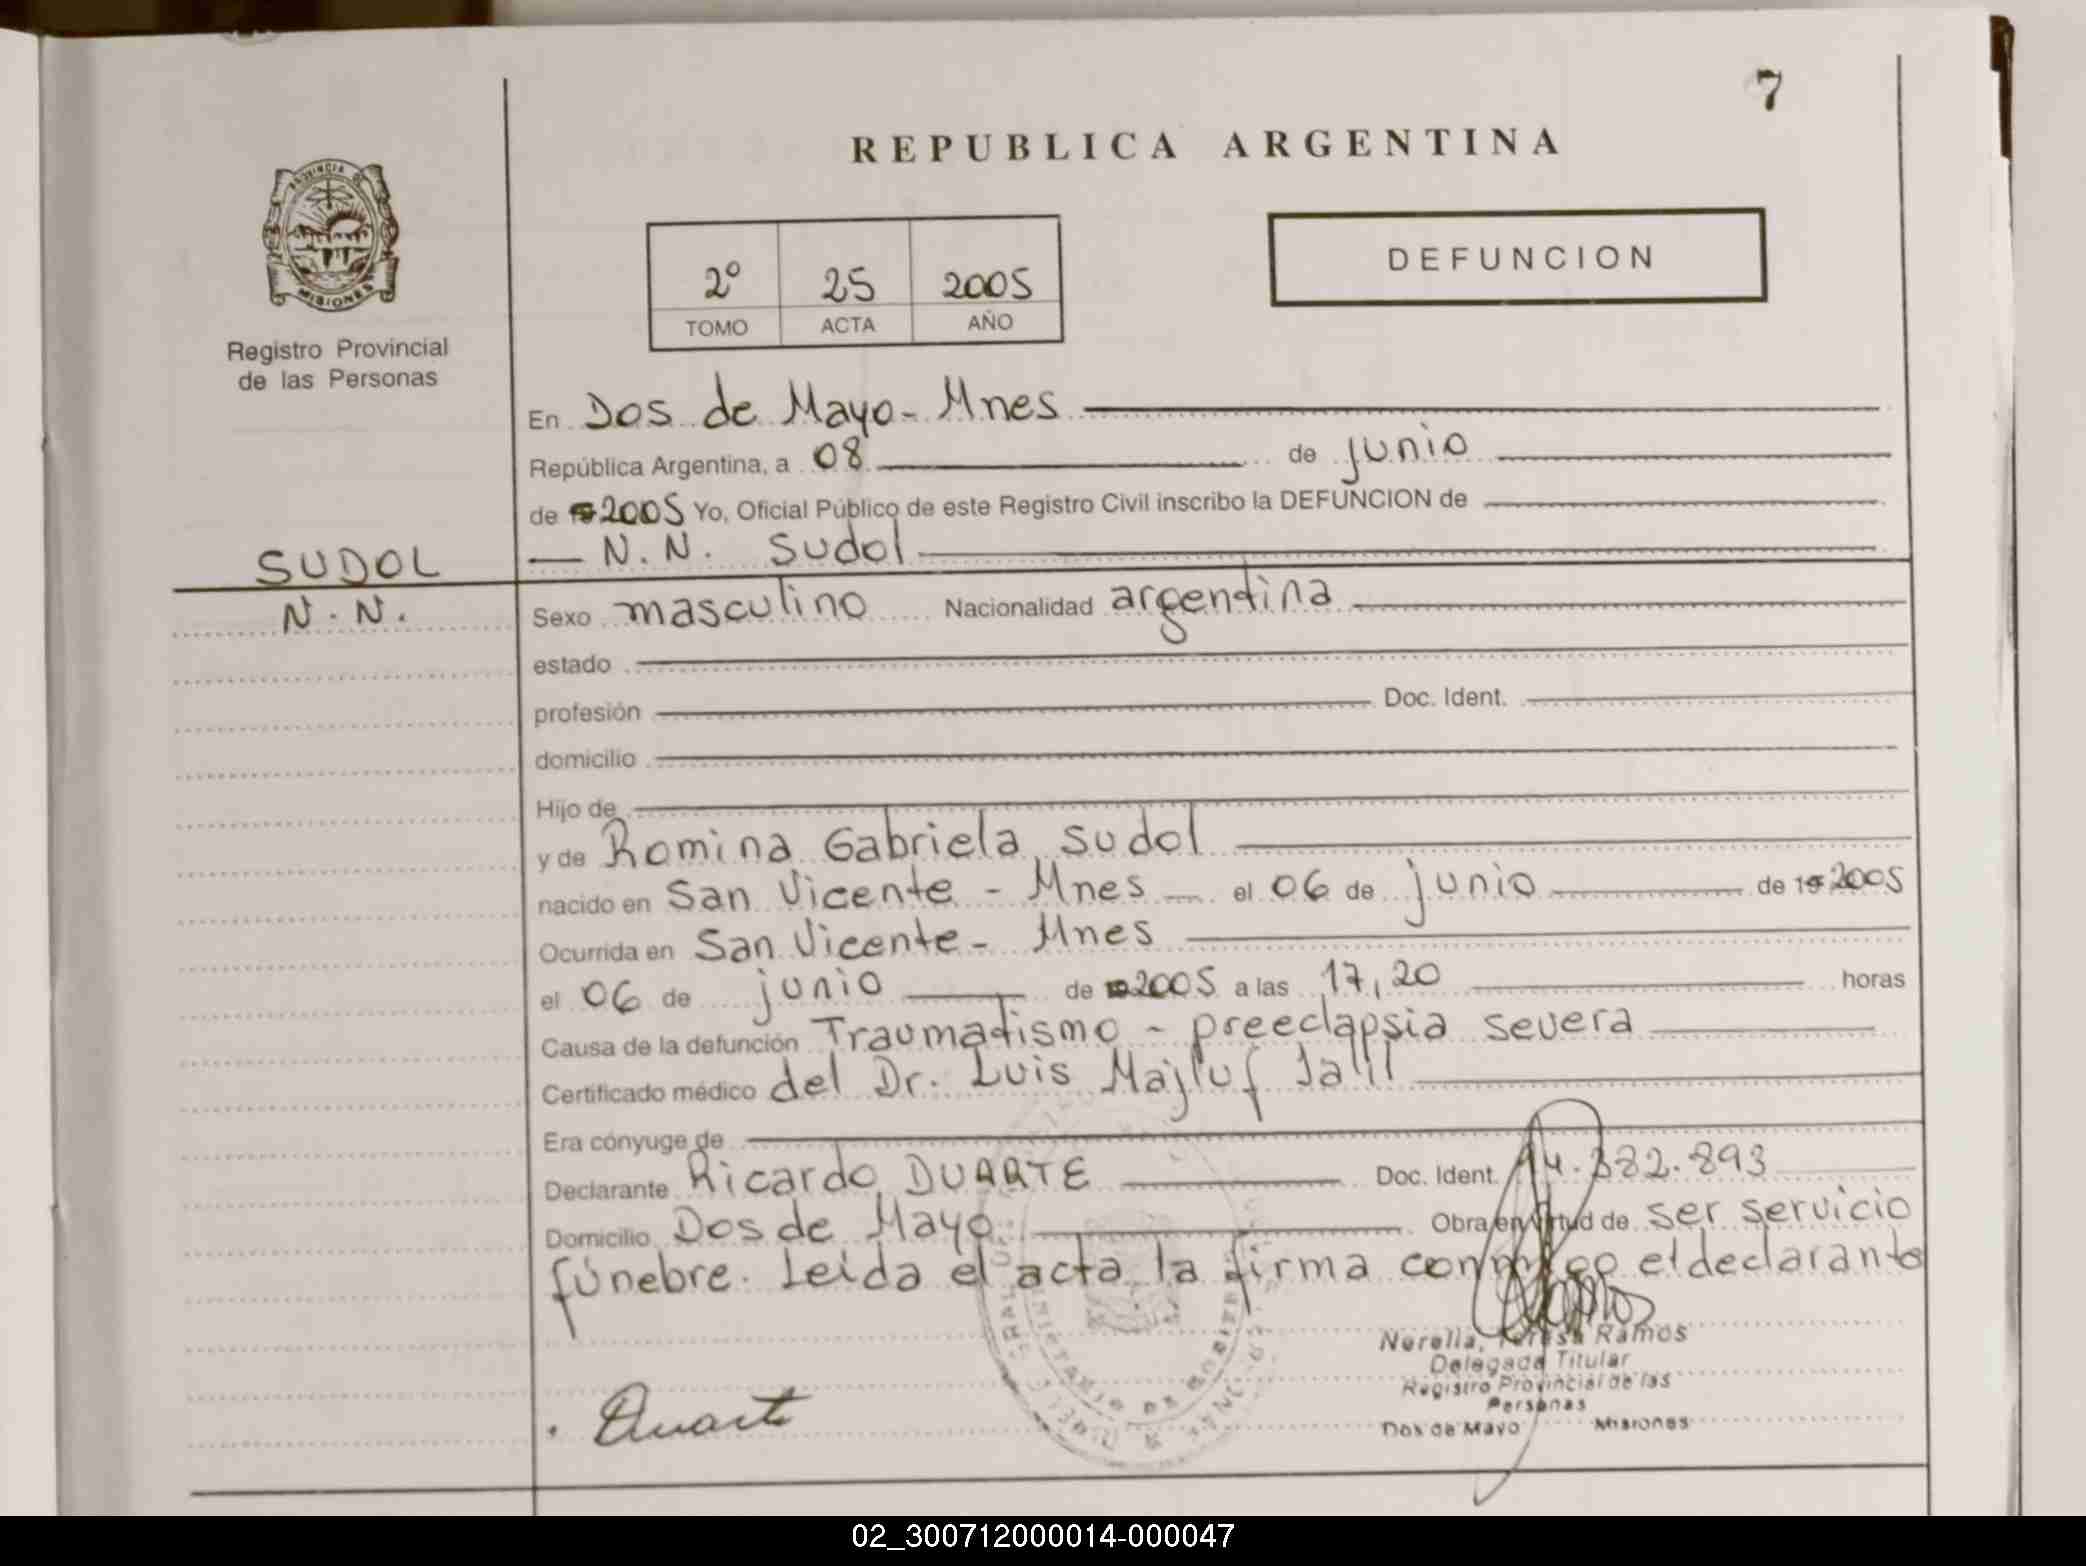 7
REPUBLICA ARGENTINA
PROVINCIA DE
MISIONES
2º 25 2005
TOMO ACTA AÑO
DEFUNCION
Registro Provincial
de las Personas
En Dos de Mayo - Mnes
República Argentina, a 08 de junio
de 2005 Yo, Oficial Público de este Registro Civil inscribo la DEFUNCION de
N.N. Sudol
SUDOL
N.N.
Sexo masculino Nacionalidad argentina
estado
profesión Doc. Ident.
domicilio
Hijo de
y de Romina Gabriela Sudol
nacido en San Vicente - Mnes el 06 de junio de 19 2005
Ocurrida en San Vicente - Mnes
el 06 de junio de 2005 a las 17,20 horas
Causa de la defunción Traumatismo - preeclapsia severa
Certificado médico del Dr. Luis Majluf Jalil
Era cónyuge de
Declarante Ricardo DUARTE Doc. Ident. 14.382.893
Domicilio Dos de Mayo Obra en virtud de ser servicio
fúnebre. Leída el acta la firma conmigo el declarante
Duarte
Norella, Teresa Ramos
Delegada Titular
Registro Provincial de las
Personas
Dos de Mayo Misiones
02_300712000014-000047